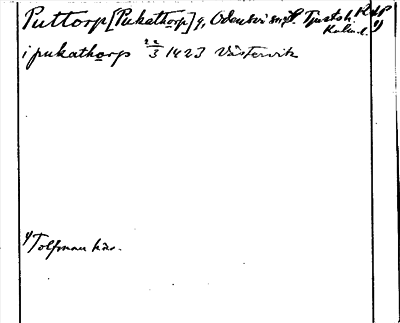 Puttorp [Pukathorp] g, Odensvi sn, S. Tjusts h. Kalm. l.
i pukathorps 22/3 1423 Västervik
Tolfmannakär.